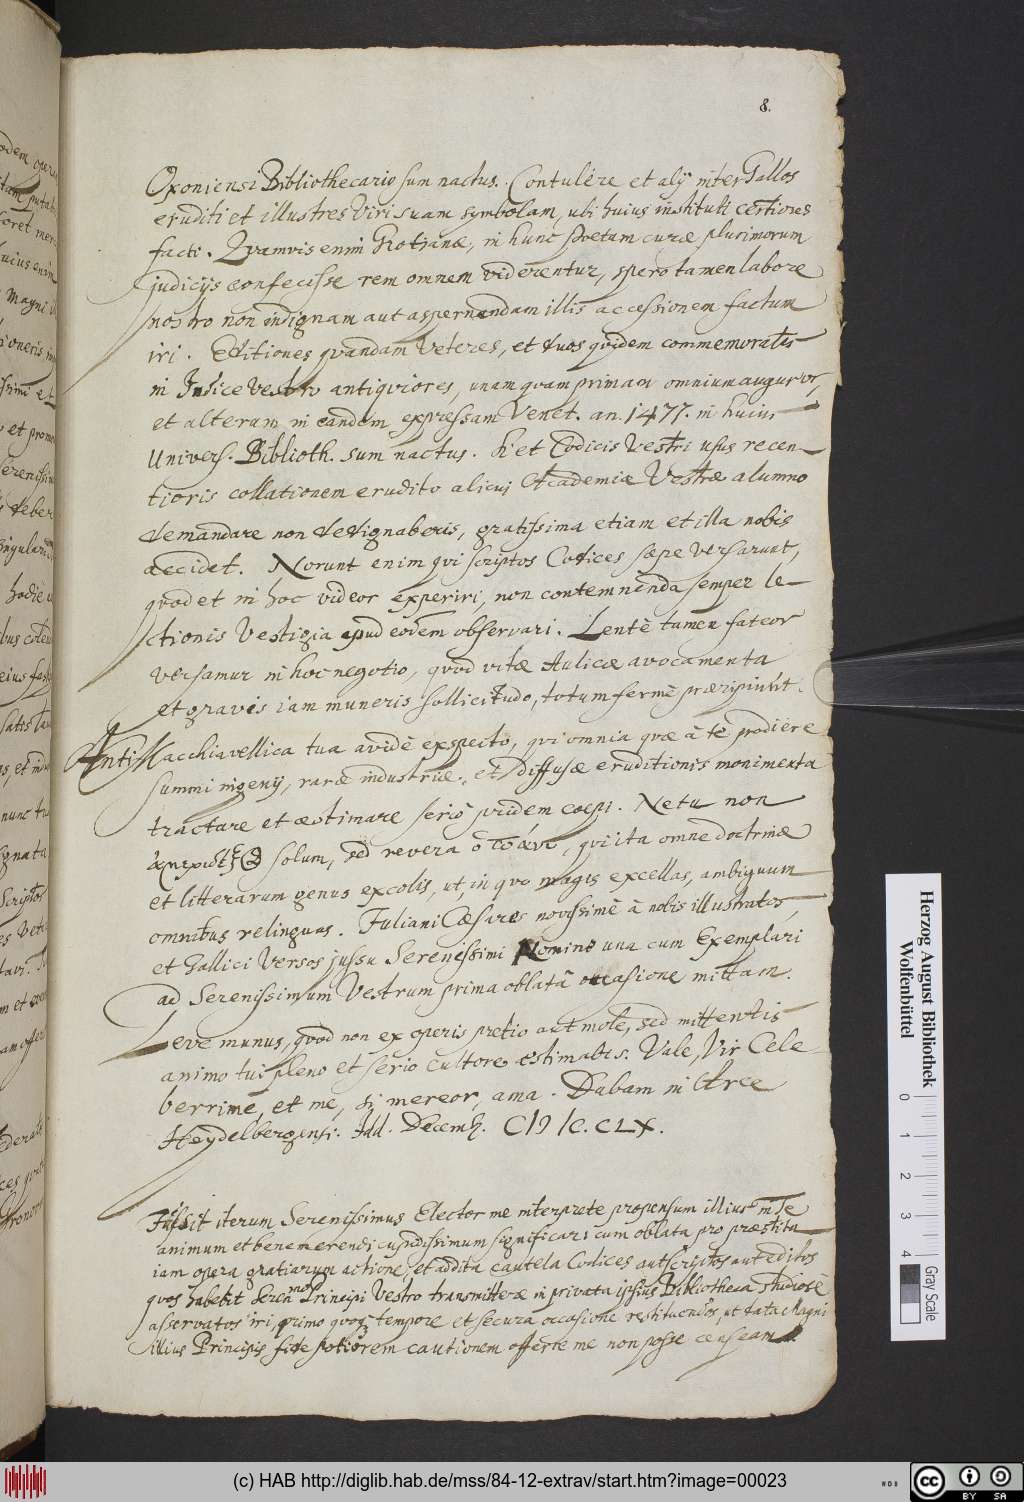 8.
Oxoniensi Bibliothecario sum nactus. Contulêre et alij inter Gallos
eruditi et illustres Viri suam symbolam, ubi huius instituti certiores
facti. Quamvis enim Grotianæ, in hunc Poetam curæ plurimorum
judicijs confecisse rem omnem viderentur, spero tamen labore
nostro non indignam aut aspernandam illis accessionem factum
iri. Editiones quasdam Veteres, et duos quidem commemoratas
in Indice Vestro antiquiores, unam quam primam omnium auguror,
et alteram in eandem expressam Venet. an. 1477. in huius
Univers. Biblioth. sum nactus. et Codicis Vestri usus recen-
tioris collationem erudito alicuj Academiæ Vestræ alumno
demandare non dedignaberis, gratissima etiam et illa nobis
accidet. Norunt enim qui scriptos Codices sæpe versarunt,
quod et in hoc videor experiri, non contemnenda semper le-
ctionis vestigia apud eosdem observari. Lentè tamen fateor
versamur in hoc negotio, quod vitæ Aulicæ avocamenta
et gravis iam muneris sollicitudo, totum fermè præripiunt.
AntiMacchiavellica tua avidè expecto, qui omnia quæ à te prodiére
summi ingenij, raræ industriæ, et diffusæ eruditionis monimenta
tractare et æstimare seriò pridem coepi. Ne tu non
solum, sed revera ὁ πάνυ, qui ita omne doctrinæ
et litterarum genus excolis, ut, in quo magis excellas, ambiguum
omnibus relinquas. Juliani Cæsares novissimè à nobis illustratos,
et Gallicè versos jussu Serenissimi Domini una cum Exemplari
ad Serenissimum Vestrum prima oblatâ occasione mittam.
Leve munus, quod non ex operis pretio aut mole, sed mittentis
animo tui pleno et serio cultore æstimabis. Vale, Vir Cele-
berrime, et me, si mereor, ama. Dabam in Arce
Heydelbergensi. Idd. Decemb. CIƆ IƆC. CLX.
Jussit iterum Serenissimus Elector me interprete propensum illius in Te
animum et benemerendi cupidissimum significari cum oblata pro præstita
iam opera gratiarum actione, et addita cautela Codices aut scriptos aut editos
quos habebit Seren.mo Principi Vestro transmittere in privata ipsius Bibliotheca studiosè
asservatos iri, primo quoq; tempore et secura occasione restituendos, ut data Magni
illius Principis fide potiorem cautionem offerre me non posse censeam.
Herzog August Bibliothek
Wolfenbüttel
0 1 2 3 4
Gray Scale
(c) HAB http://diglib.hab.de/mss/84-12-extrav/start.htm?image=00023
WDB
CC BY SA